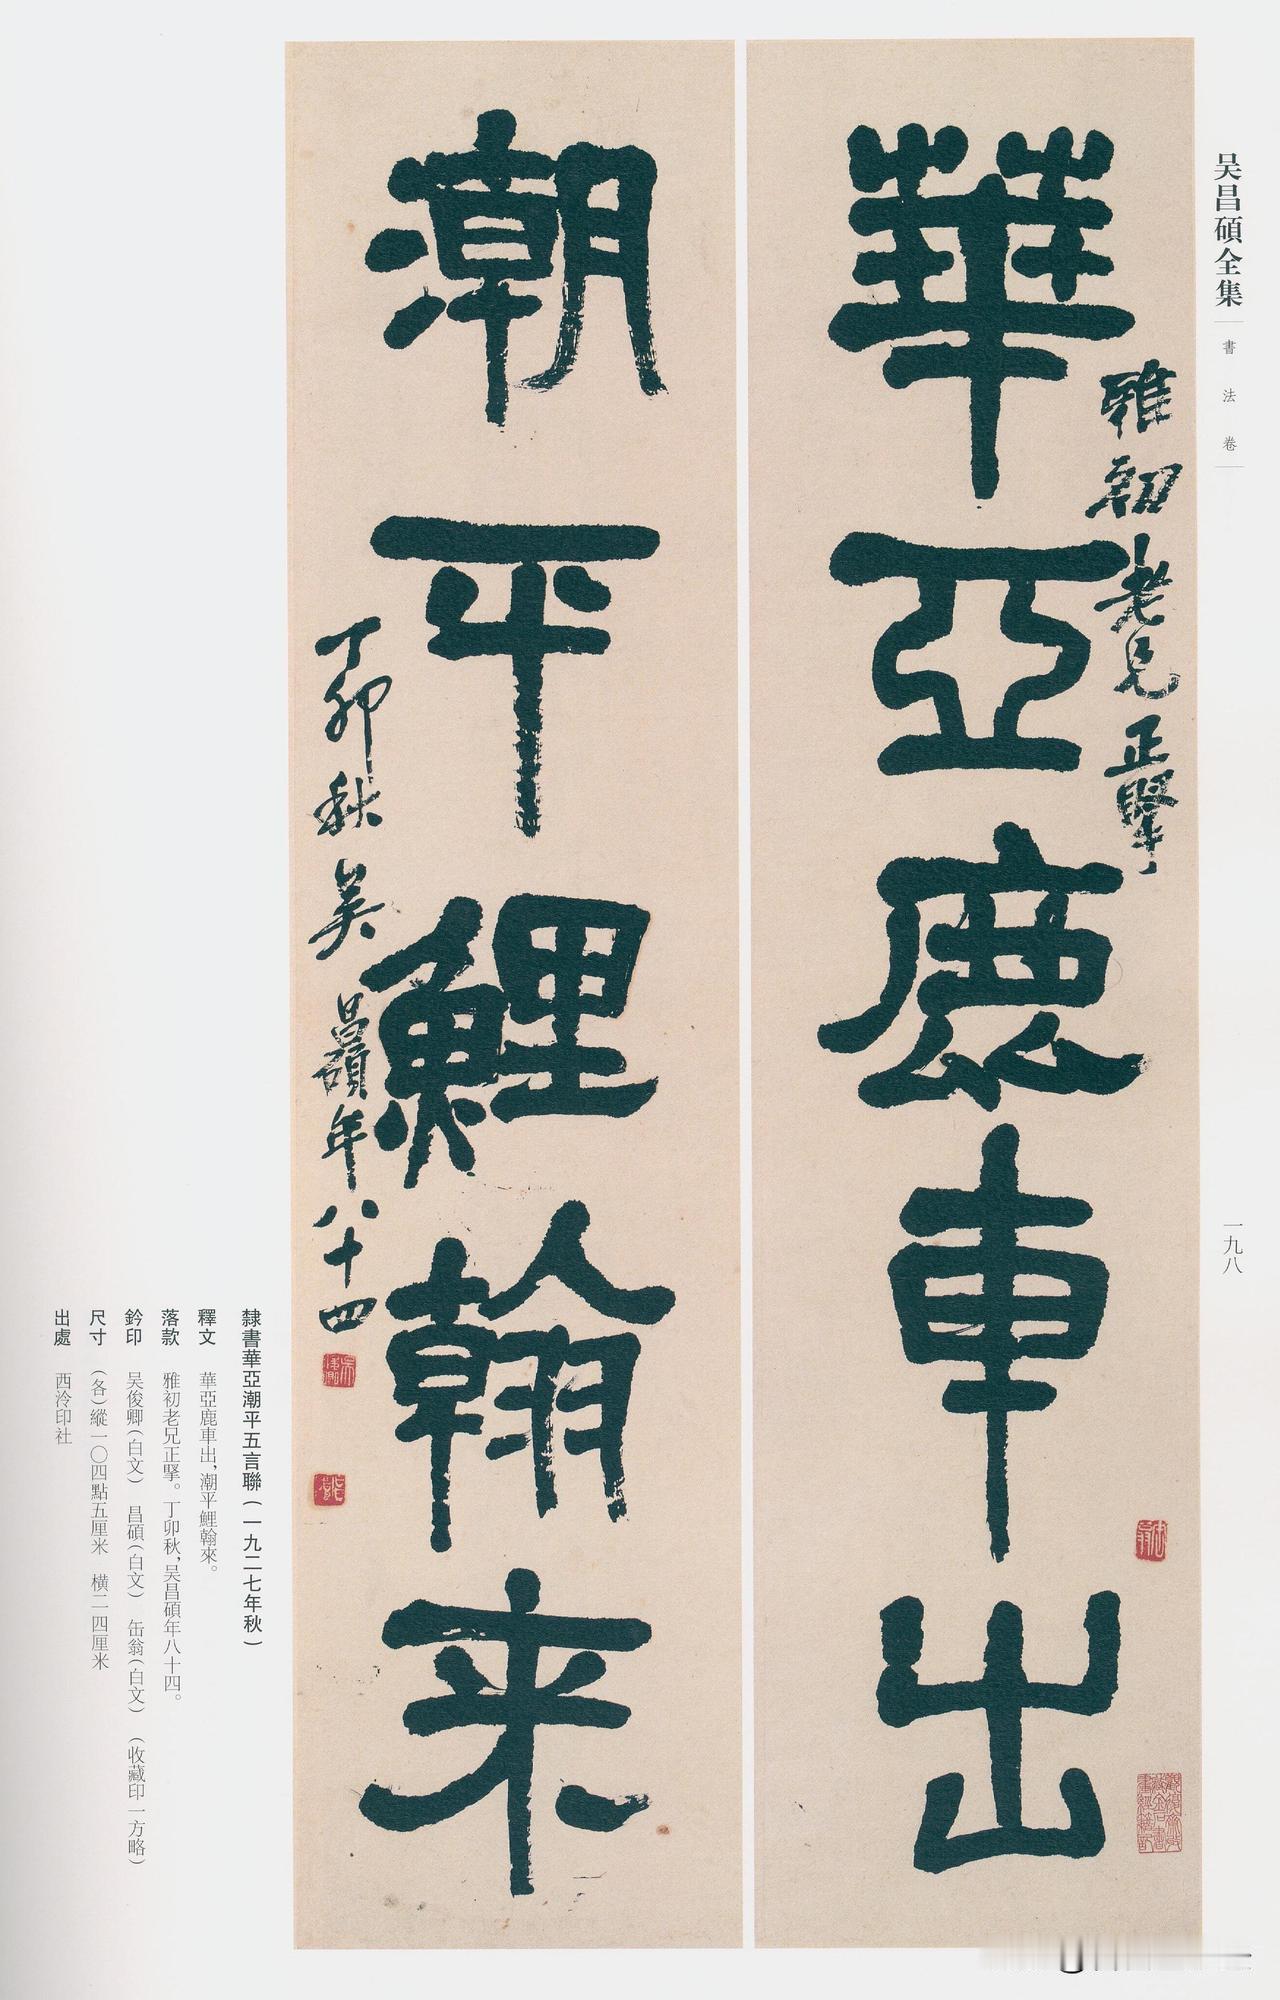 吴昌碩全集
書法卷
一九八
華亞鹿車出
雅初老兄正擊
潮平鯉翰来
丁卯秋吴昌碩年八十四
隸書華亞潮平五言聯（一九二七年秋）
釋文　華亞鹿車出，潮平鯉翰來。
落款　雅初老兄正擊。丁卯秋，吴昌碩年八十四。
鈐印　吴俊卿（白文）　昌碩（白文）　缶翁（白文）　（收藏印一方略）
尺寸　（各）縱一〇四點五厘米　横二四厘米
出處　西泠印社